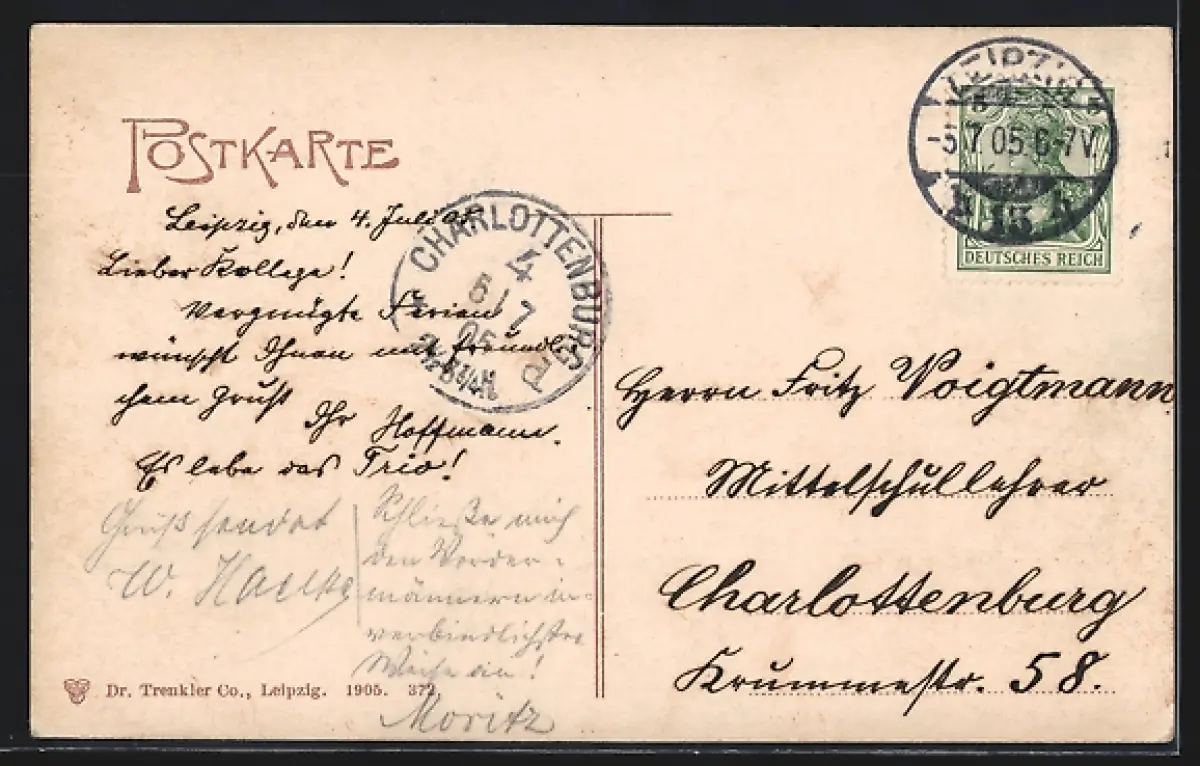 POSTKARTE
Leipzig, den 4. Juli 05
Lieber Kollege!
Vergnügte Ferien
wünscht Ihnen mit freundli-
chem Gruß
Ihr Hoffmann.
Es lebe das Trio!
Gruß sendet
W.
Schließe mich
den Vorder-
männern in
verbindlichster
Weise an!
Moritz
Dr. Trenkler Co., Leipzig. 1905. 372.
CHARLOTTENBURG
4
5/7
05
LEIPZIG
5 5
-5.7.05.6-7V.
13
DEUTSCHES REICH
Herrn Fritz Voigtmann
Mittelschullehrer
Charlottenburg
Krummestr. 58.